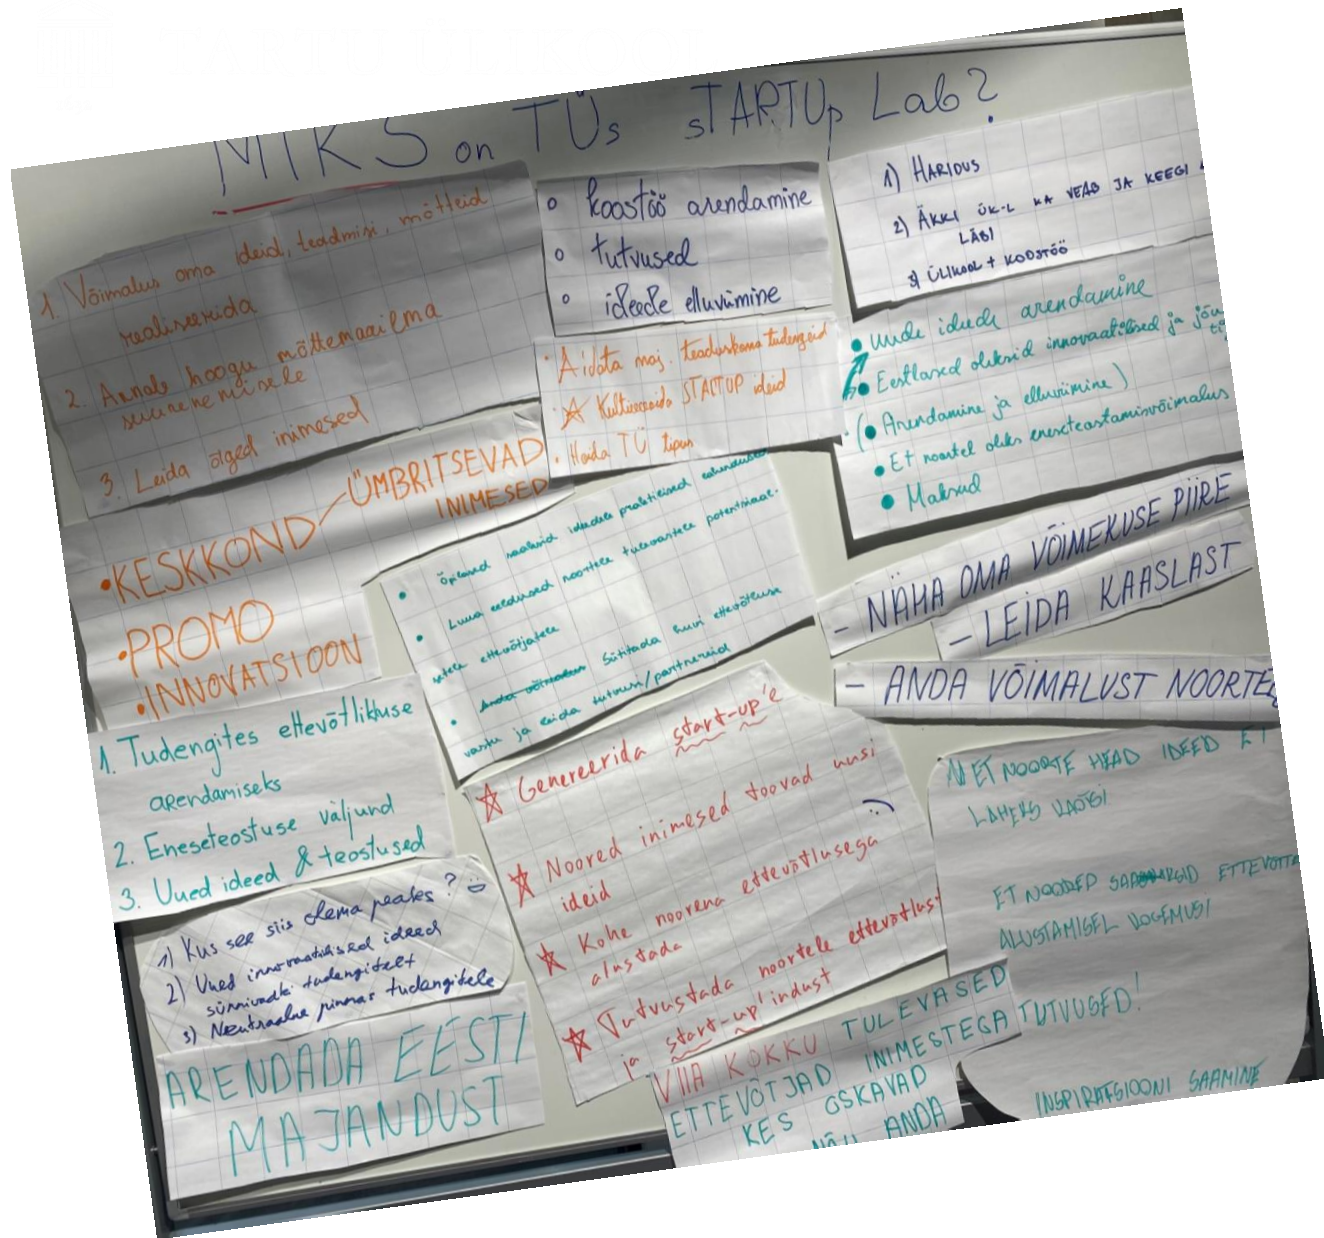 MIKS on TÜs STARTUp Lab?
1. Võimalus oma ideid, teadmisi, mõtteid
realiseerida
2. Annab hoogu mõttemaailma
suurenemisele
3. Leida õiged inimesed
o koostöö arendamine
o tutvused
o ideede elluviimine
1) HARIDUS
2) ÄKKI ÜK-L KA VEAB JA KEEGI
LÄBI
3) ÜLIKOOL + KOOSTÖÖ
• Aidata maj. teaduskonna tudengeid
☆ Kultiveerida STARTUP ideid
• Hoida TÜ tipus
• Uude ideede arendamine
• Eestlased oleksid innovaatilised ja
(• Arendamine ja elluviimine)
• Et noortel oleks eneseteostamisvõimalus
• Maksud
• KESKKOND — ÜMBRITSEVAD
INIMESED
• PROMO
• INNOVATSIOON
• Õpilased saaksid ideedele praktilised
• Luua eeldused noortele tulevastele potentsiaal-
setele ettevõtjatele
• Sütitada huvi ettevõtluse
vastu ja leida tutvusi/partnereid
- NÄHA OMA VÕIMEKUSE PIIRE
- LEIDA KAASLAST
- ANDA VÕIMALUST NOORTELE
1. Tudengites ettevõtlikuse
arendamiseks
2. Eneseteostuse väljund
3. Uued ideed & teostused
☆ Genereerida start-up'e
☆ Noored inimesed toovad uusi
ideid
☆ Kohe noorena ettevõtlusega
alustada
☆ Tutvustada noortele ettevõtlust
ja start-up'indust
ET NOORTE HEAD IDEED EI
LÄHEKS KAOTSI
ET NOORED SAAKSID ETTEVÕTTE
ALUSTAMISEL KOGEMUSI
TUTVUSED!
INSPIRATSIOONI SAAMINE
1) Kus see siis olema peaks?
2) Uued innovaatilised ideed
sünnivadki tudengitelt
3) Neutraalne pinnas tudengitele
ARENDADA EESTI
MAJANDUST
VIIA KOKKU TULEVASED
ETTEVÕTJAD INIMESTEGA
KES OSKAVAD
NÕU ANDA